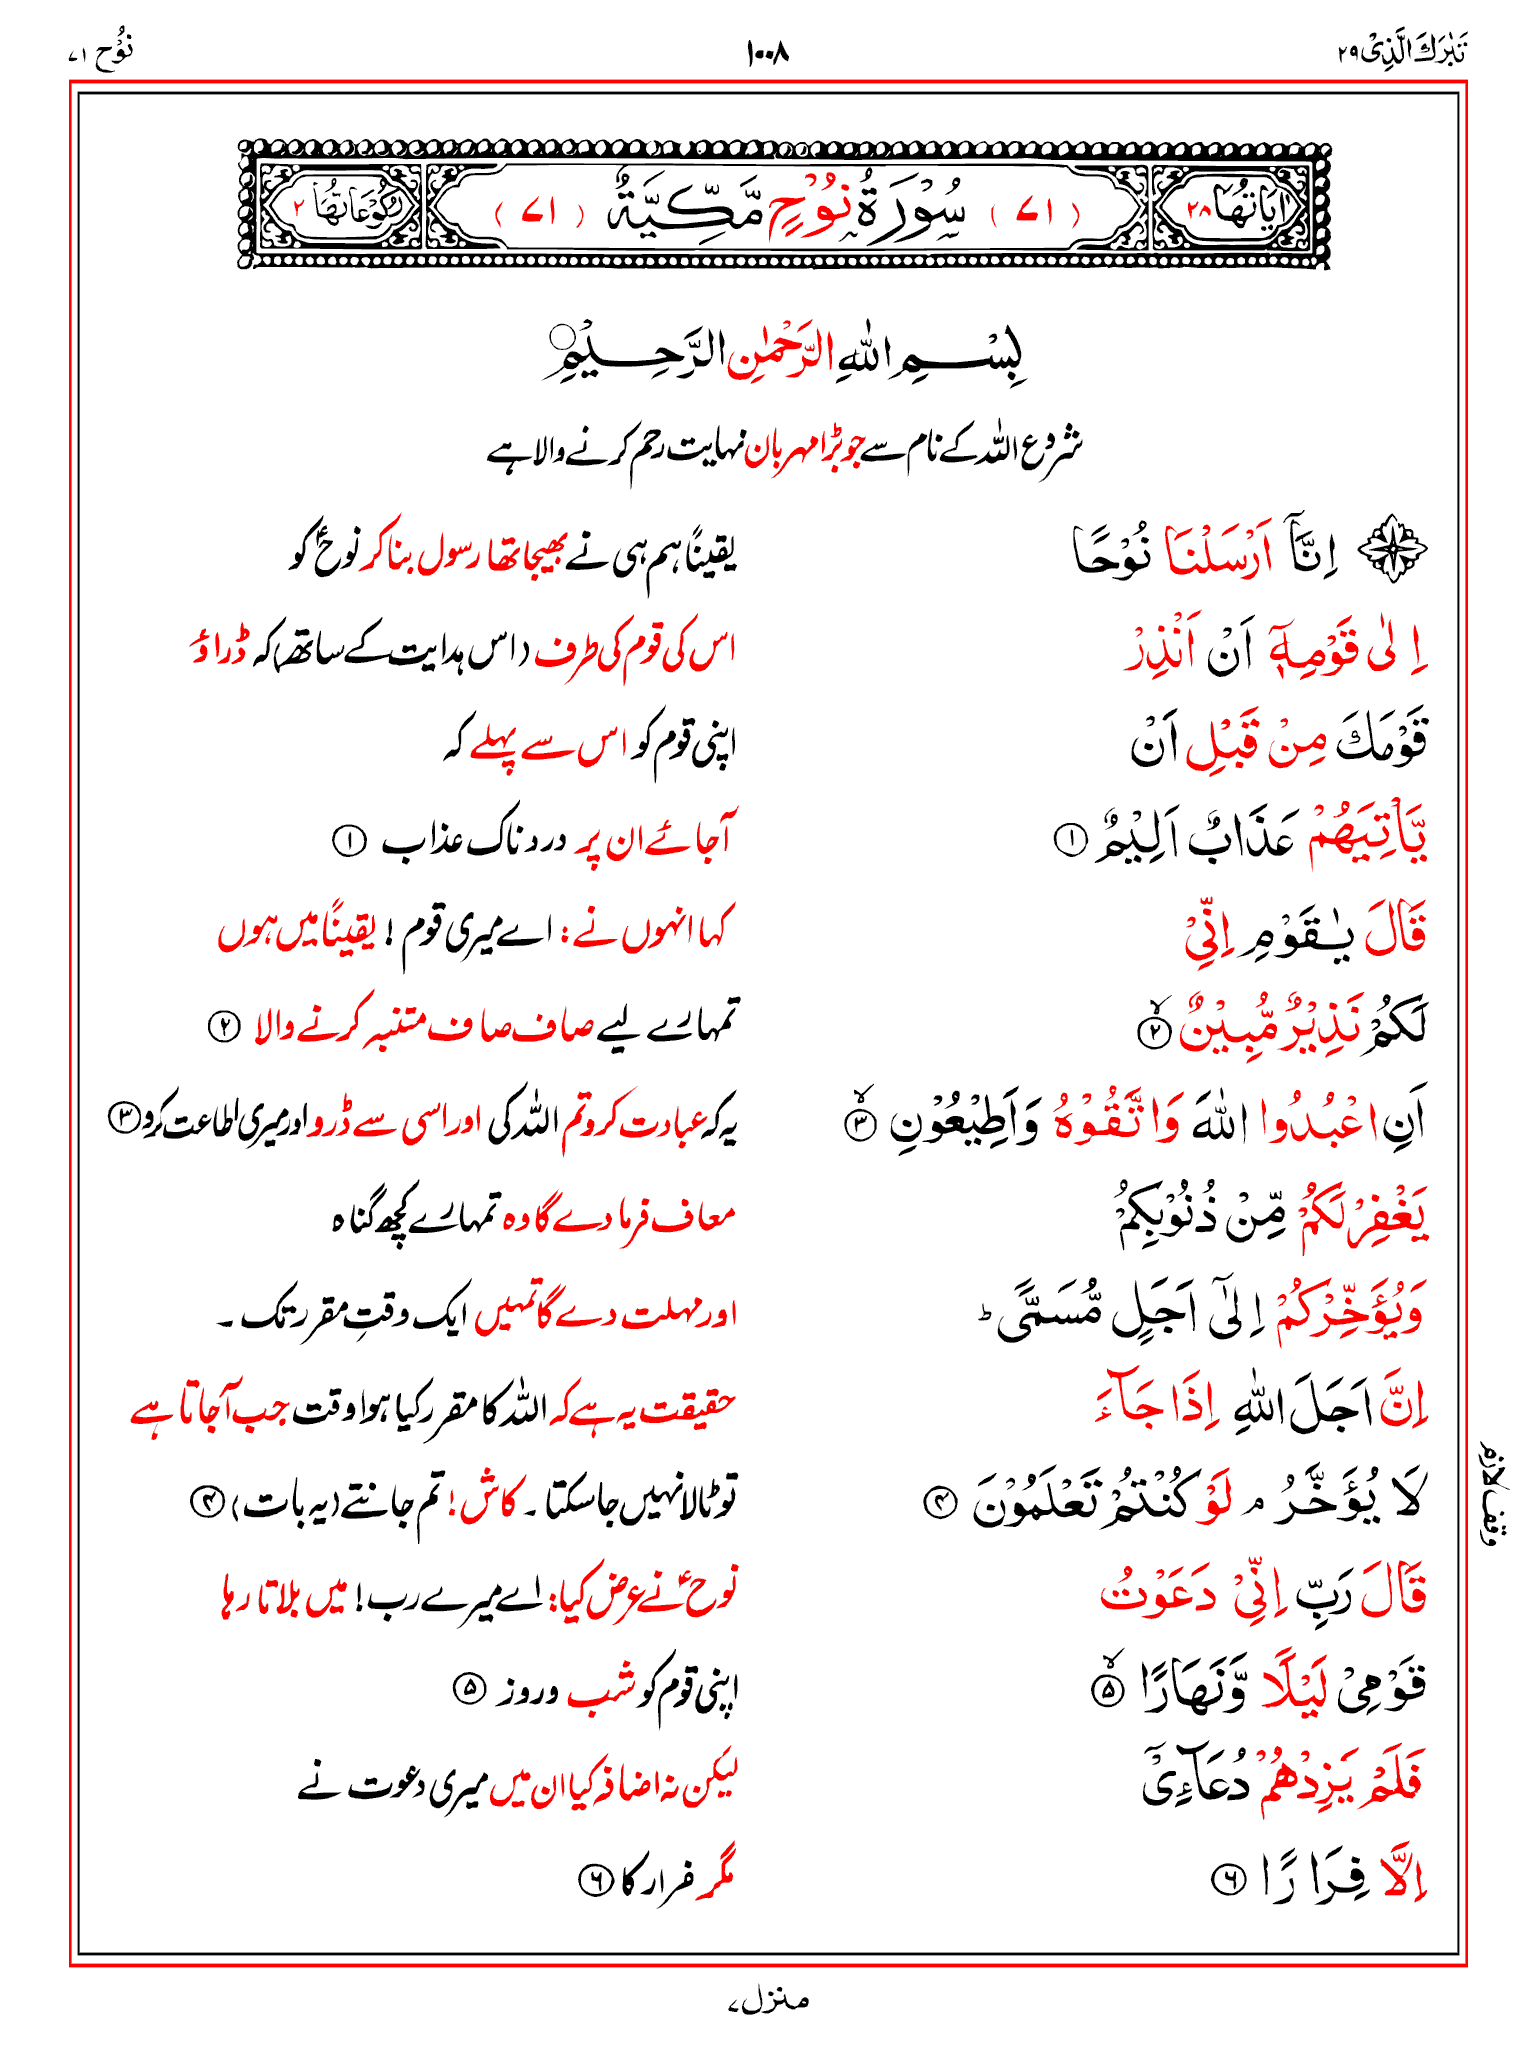 تَبٰرَكَ الَّذِىْ ٢٩
١٠٠٨
نُوْح ٧١
اٰيَاتُهَا ٢٨
(٧١) سُوْرَةُ نُوْحٍ مَّكِّيَّةٌ (٧١)
رُكُوْعَاتُهَا ٢
بِسْمِ اللّٰهِ الرَّحْمٰنِ الرَّحِيْمِ
شروع اللہ کے نام سے جو بڑا مہربان نہایت رحم کرنے والا ہے
اِنَّآ اَرْسَلْنَا نُوْحًا
یقیناً ہم ہی نے بھیجا تھا رسول بنا کر نوحؑ کو
اِلٰى قَوْمِهٖٓ اَنْ اَنْذِرْ
اس کی قوم کی طرف (اس ہدایت کے ساتھ) کہ ڈراؤ
قَوْمَكَ مِنْ قَبْلِ اَنْ
اپنی قوم کو اس سے پہلے کہ
يَّاْتِيَهُمْ عَذَابٌ اَلِيْمٌ ①
آجائے ان پر دردناک عذاب ①
قَالَ يٰقَوْمِ اِنِّىْ
کہا انہوں نے: اے میری قوم! یقیناً میں ہوں
لَكُمْ نَذِيْرٌ مُّبِيْنٌ ۙ②
تمہارے لیے صاف صاف متنبہ کرنے والا ②
اَنِ اعْبُدُوا اللّٰهَ وَاتَّقُوْهُ وَاَطِيْعُوْنِ ۙ③
یہ کہ عبادت کرو تم اللہ کی اور اسی سے ڈرو اور میری اطاعت کرو ③
يَغْفِرْ لَكُمْ مِّنْ ذُنُوْبِكُمْ
معاف فرمادے گا وہ تمہارے کچھ گناہ
وَيُؤَخِّرْكُمْ اِلٰٓى اَجَلٍ مُّسَمًّى ؕ
اور مہلت دے گا تمہیں ایک وقتِ مقرر تک ۔
اِنَّ اَجَلَ اللّٰهِ اِذَا جَآءَ
حقیقت یہ ہے کہ اللہ کا مقرر کیا ہوا وقت جب آجاتا ہے
لَا يُؤَخَّرُ ۘ لَوْ كُنْتُمْ تَعْلَمُوْنَ ④
تو ٹالا نہیں جاسکتا ۔ کاش! تم جانتے (یہ بات) ④
وقف لازم
قَالَ رَبِّ اِنِّىْ دَعَوْتُ
نوحؑ نے عرض کیا: اے میرے رب! میں بلاتا رہا
قَوْمِىْ لَيْلًا وَّنَهَارًا ۙ⑤
اپنی قوم کو شب و روز ⑤
فَلَمْ يَزِدْهُمْ دُعَآءِىْٓ
لیکن نہ اضافہ کیا ان میں میری دعوت نے
اِلَّا فِرَارًا ⑥
مگر فرار کا ⑥
منزل ٧